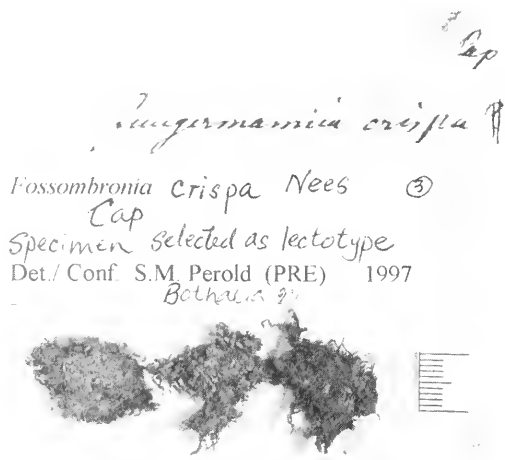 Cap
Jungermannia crispa
Fossombronia crispa Nees ③
Cap
Specimen selected as lectotype
Det./ Conf. S.M. Perold (PRE) 1997
Bothalia